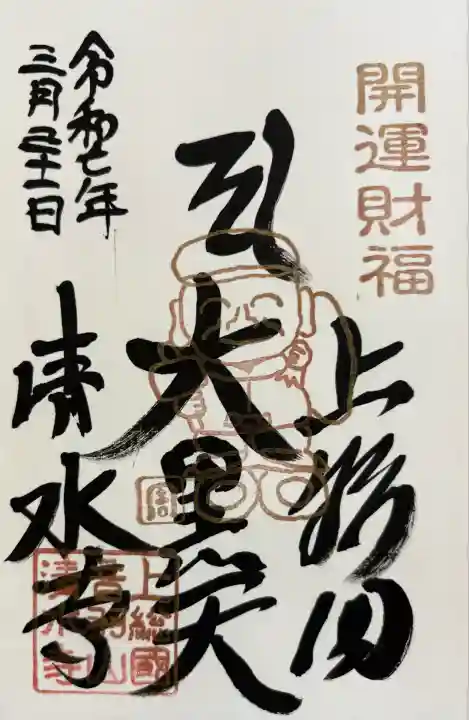 開運財福
上総国
引
大黒天
清水寺
令和七年
三月二十一日
上総國
音羽山
清水寺